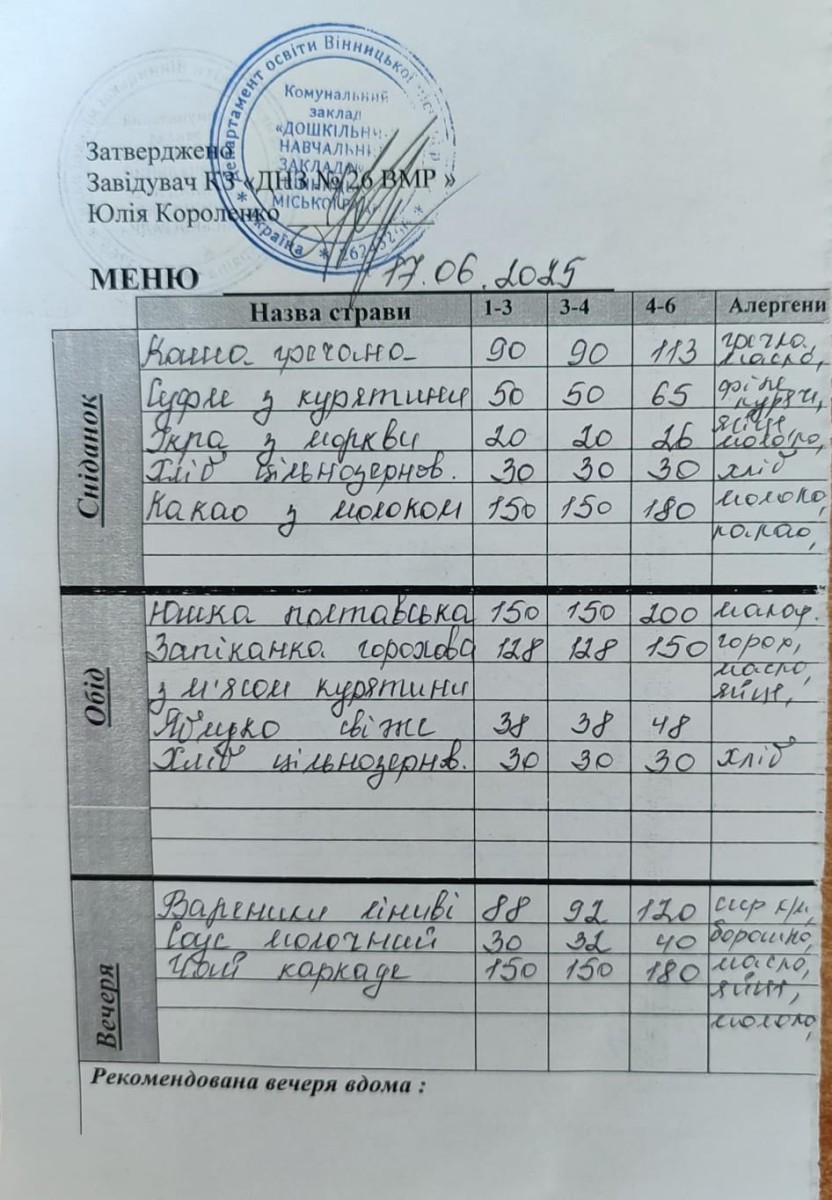 Департамент освіти Вінницької
Комунальний
заклад
«ДОШКІЛЬН
НАВЧАЛЬН
ЗАКЛАД
МІСЬКОЇ
Україна
Затверджено
Завідувач КЗ «ДНЗ № 26 ВМР »
Юлія Короленко
МЕНЮ 17.06.2025
Назва страви 1-3 3-4 4-6 Алергени
Сніданок
Каша гречана 90 90 113 гречка, масло,
Суфле з курятини 50 50 65 філе куряч,
Ікра з моркви 20 20 26 яйце молоко,
Хліб цільнозернов. 30 30 30 хліб
Какао з молоком 150 150 180 молоко,
какао,
Обід
Юшка полтавська 150 150 200
Запіканка горохова 128 128 150 горох,
з м'ясом курятини масло, яйце,
Яблуко свіже 38 38 48
Хліб цільнозернов. 30 30 30 хліб
Вечеря
Вареники ліниві 88 92 120 сир к/м,
Соус молочний 30 32 40 борошно,
Чай каркаде 150 150 180 масло,
яйце,
молоко,
Рекомендована вечеря вдома :